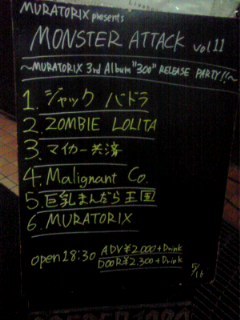 MURATORIX presents
MONSTER ATTACK vol 11
〜MURATORIX 3rd Album "300" RELEASE PARTY!!〜
1. ジャック バドラ
2. ZOMBIE LOLITA
3. マイカー共済
4. Malignant Co.
5. 巨乳まんだら王国
6. MURATORIX
open 18:30 ADV ¥2,000 + Drink
DOOR ¥2,300 + Drink